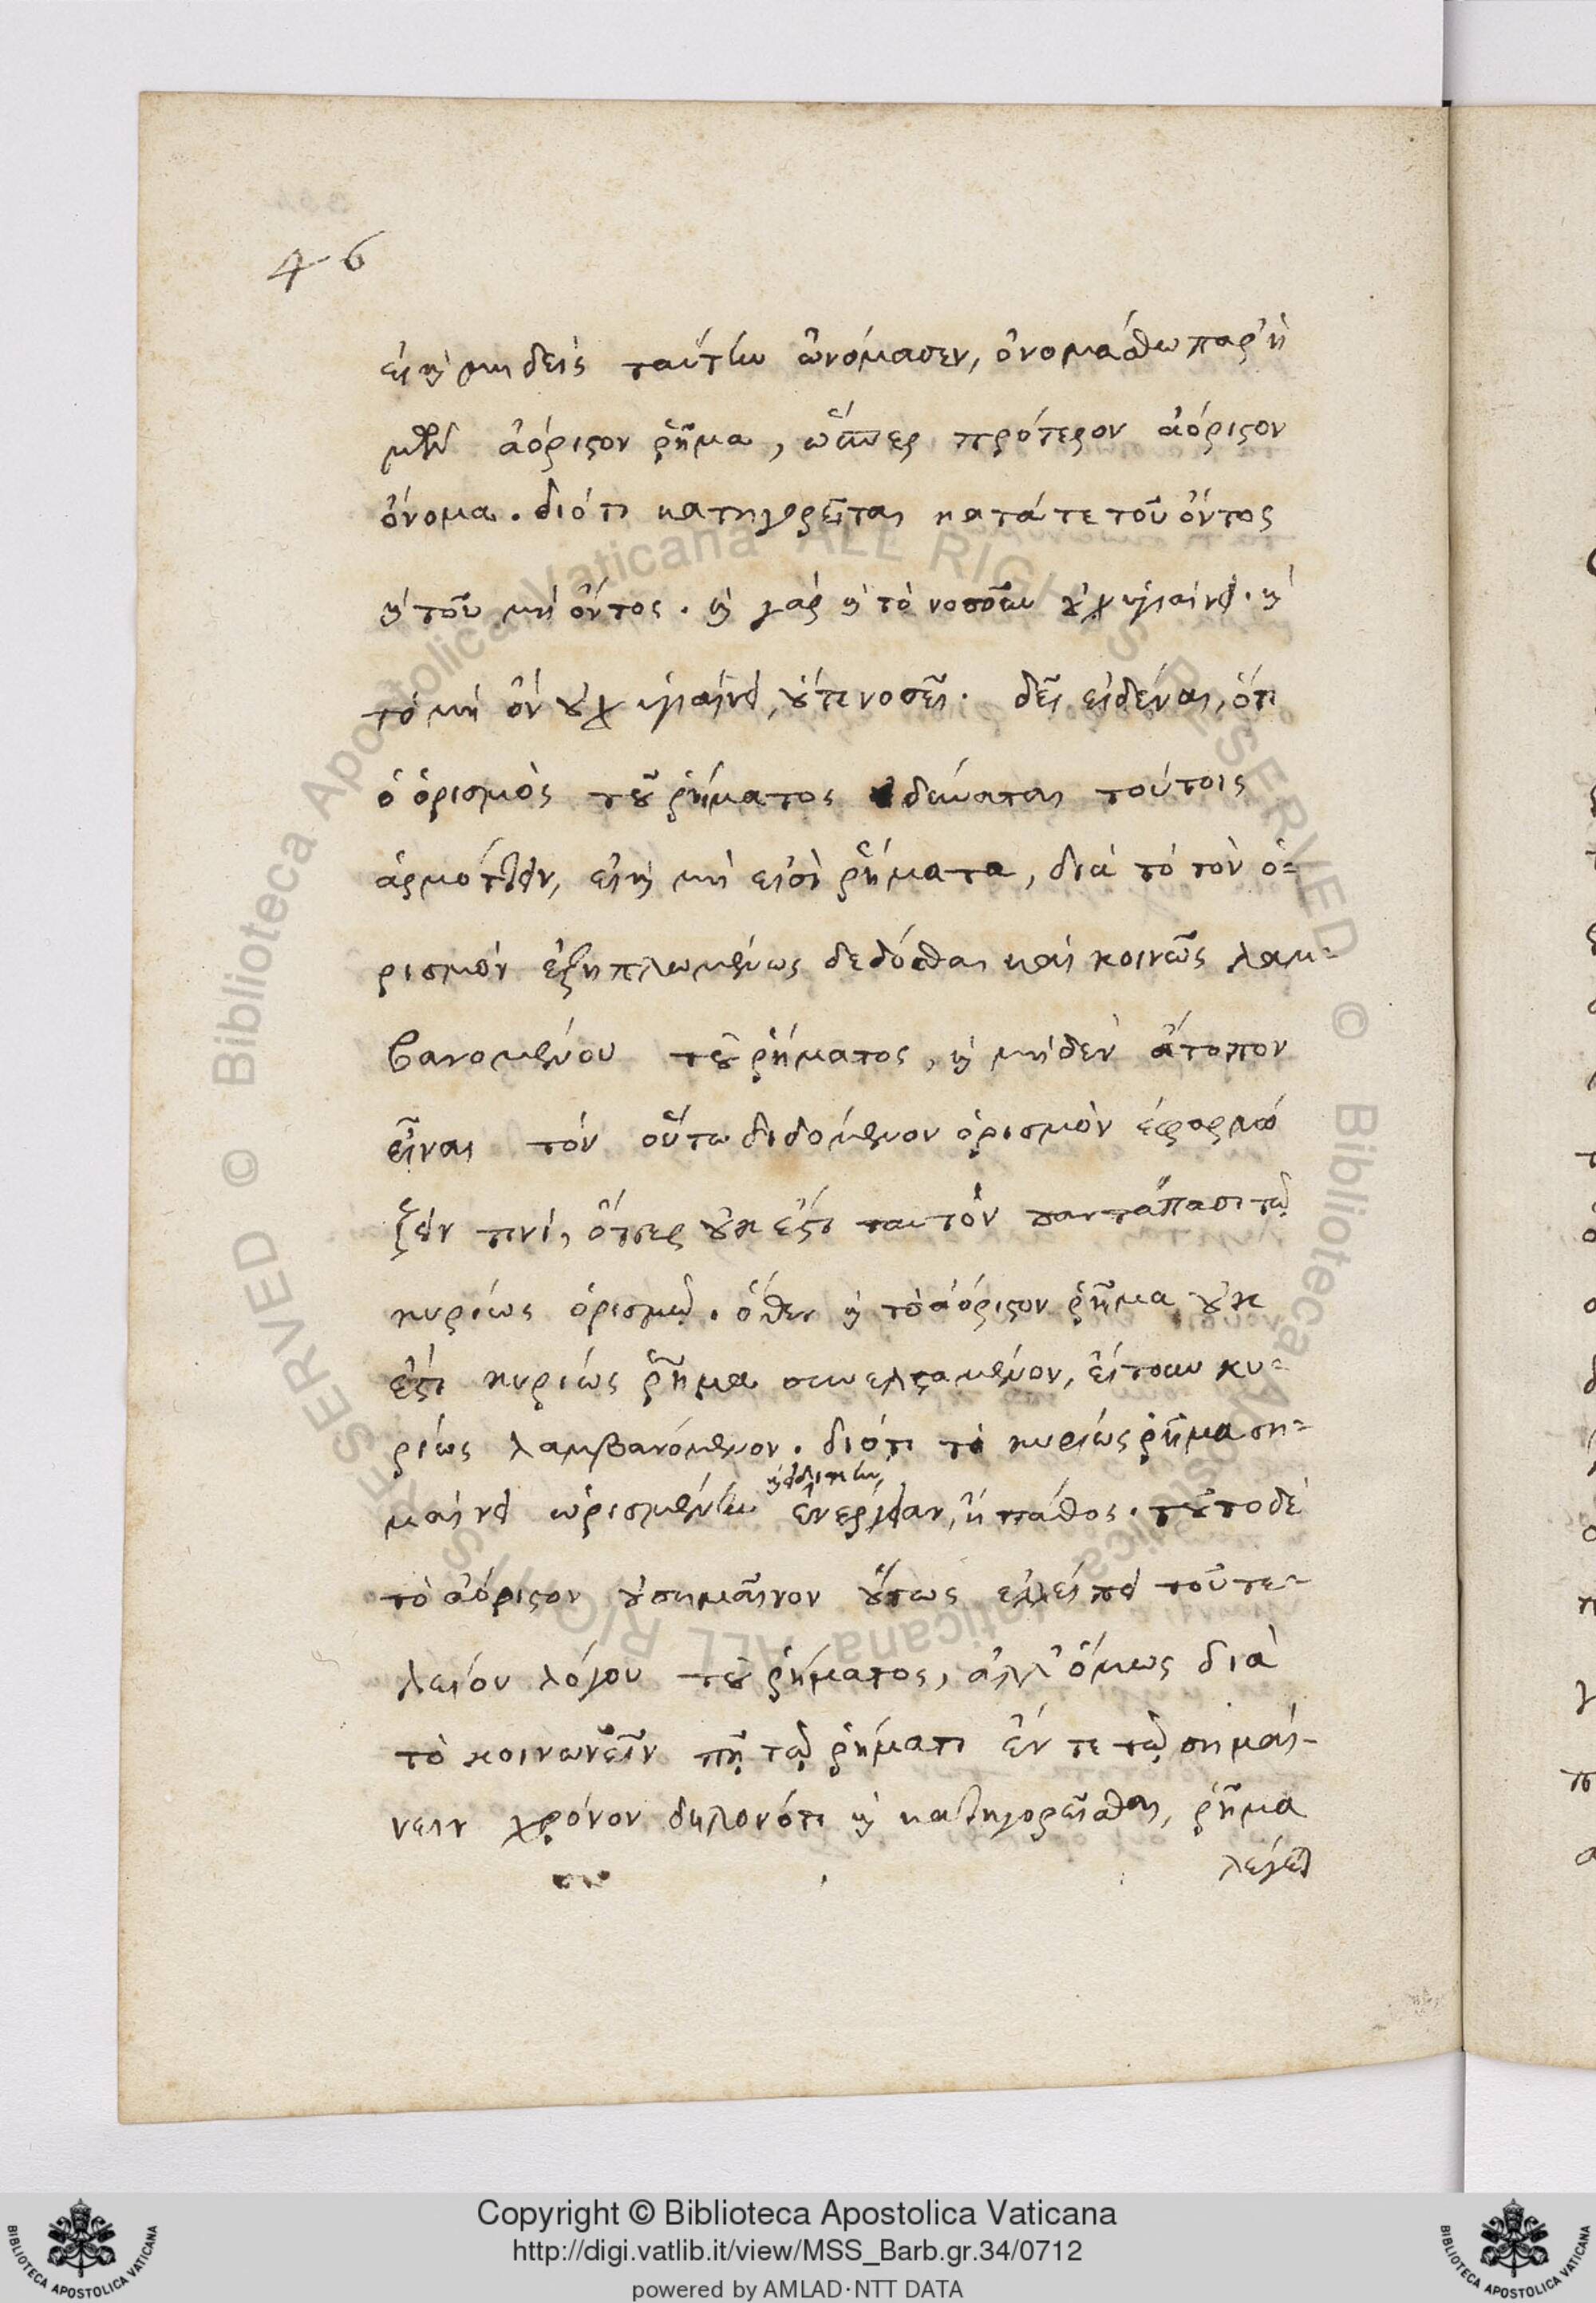 46
εἰ καὶ μηδεὶς ταύτην ὠνόμασεν, ὀνομάσθω παρ' ἡ
μῶν ἀόριστον ῥῆμα, ὥσπερ πρότερον ἀόριστον
ὄνομα. διότι κατηγορεῖται κατά τε τοῦ ὄντος
καὶ τοῦ μὴ ὄντος. καὶ γὰρ καὶ τὸ νοσοῦν οὐχ ὑγιαίνει. καὶ
τὸ μὴ ὂν οὐχ ὑγιαίνει, οὔτε νοσεῖ. δεῖ εἰδέναι, ὅτι
ὁ ὁρισμὸς τοῦ ῥήματος δύναται τούτοις
ἁρμόττειν, εἰ καὶ μὴ εἰσὶ ῥήματα, διὰ τὸ τὸν ὁ-
ρισμὸν ἐξηπλωμένως δεδόσθαι καὶ κοινῶς λαμ-
βανομένου τοῦ ῥήματος, καὶ μηδὲν ἄτοπον
εἶναι τὸν οὕτω διδόμενον ὁρισμὸν ἐφαρμό
ζειν τινὶ, ὅπερ οὐκ ἔστι ταυτὸν παντάπασι τῷ
κυρίως ὁρισμῷ. ὅθεν καὶ τὸ ἀόριστον ῥῆμα οὐκ
ἔστι κυρίως ῥῆμα συνεσταλμένον, εἴτουν κυ-
ρίως λαμβανόμενον. διότι τὸ κυρίως ῥῆμα ση-
μαίνει ὡρισμένην ἐνέργειαν, ἢ πάθος. τοῦτο δὲ
τὸ ἀόριστον οὐ σημαῖνον οὕτως ἐλλείπει τοῦ τε-
λείου λόγου τοῦ ῥήματος, ἀλλ' ὅμως διὰ
τὸ κοινωνεῖν πῃ τῷ ῥήματι ἔν τε τῷ σημαί-
νειν χρόνον δηλονότι καὶ κατηγορεῖσθαι, ῥῆμα
λέγεται
© Biblioteca Apostolica Vaticana ALL RIGHTS RESERVED
© Biblioteca Apostolica Vaticana ALL RIGHTS RESERVED
Copyright © Biblioteca Apostolica Vaticana
http://digi.vatlib.it/view/MSS_Barb.gr.34/0712
powered by AMLAD·NTT DATA
BIBLIOTECA APOSTOLICA VATICANA
BIBLIOTECA APOSTOLICA VATICANA